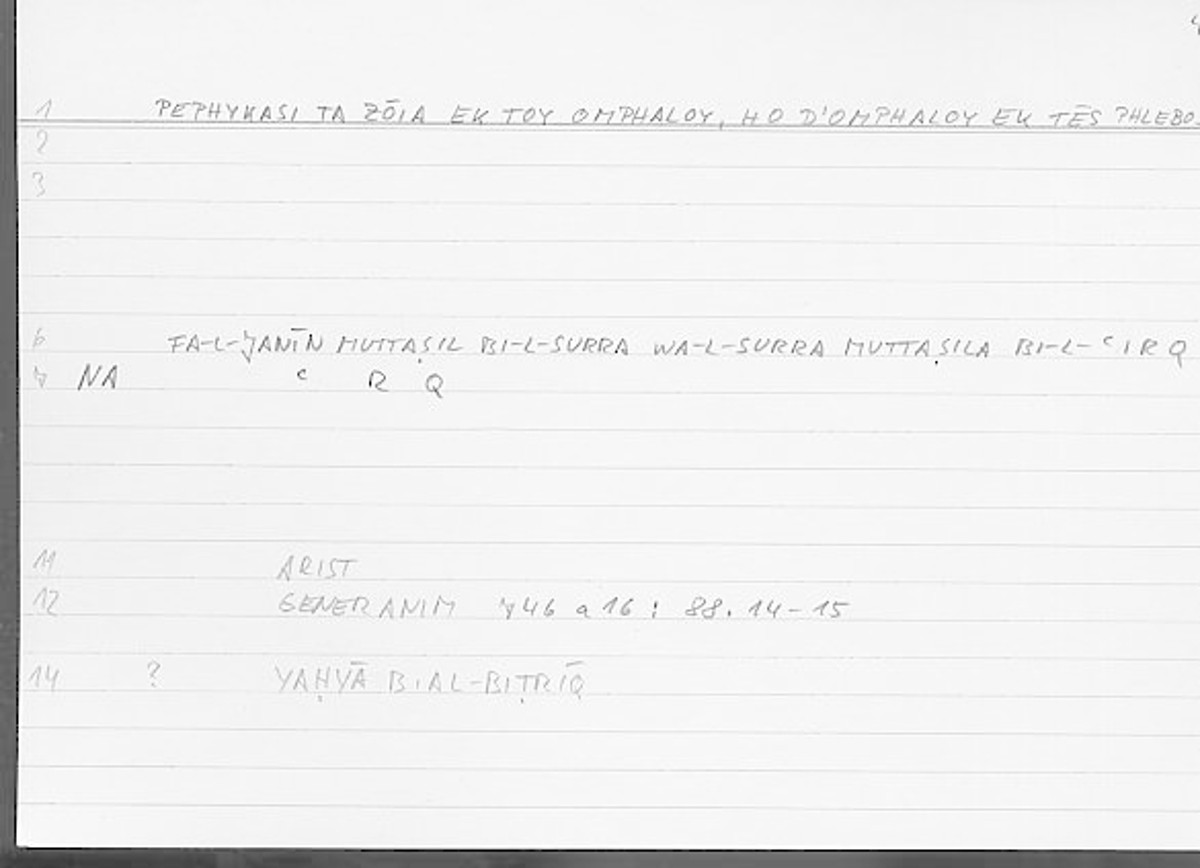 1 PEPHYKASI TA ZŌIA EK TOY OMPHALOY, HO D'OMPHALOY EK TĒS PHLEBOS
2
3
6 FA-L-JANĪN MUTTAṢIL BI-L-SURRA WA-L-SURRA MUTTAṢILA BI-L-ʿIRQ
7 NA ʿ R Q
11 ARIST
12 GENER ANIM 746 a 16 : 88.14-15
14 ? YAḤYĀ B.AL-BIṬRĪQ